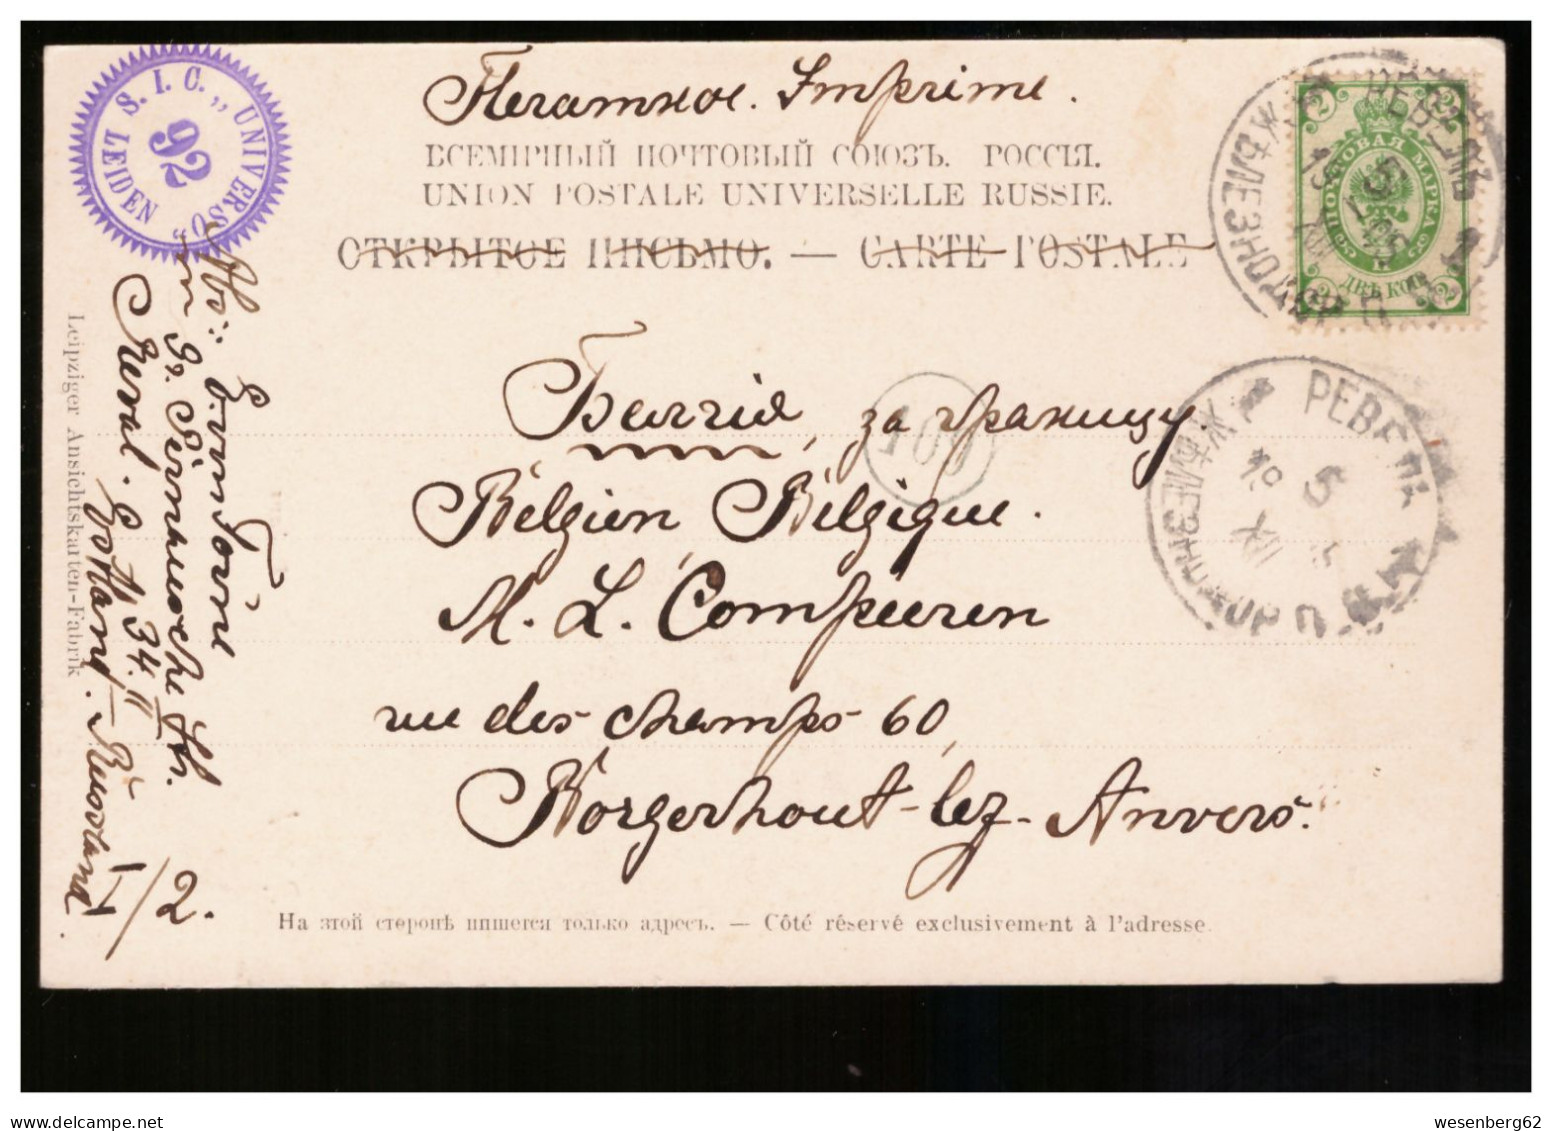 Печатное. Imprimé.
ВСЕМІРНЫЙ ПОЧТОВЫЙ СОЮЗЪ. РОССІЯ.
UNION POSTALE UNIVERSELLE RUSSIE.
ОТКРЫТОЕ ПИСЬМО. — CARTE POSTALE
S. I. C. „UNIVERSO"
92
LEIDEN
ПОЧТОВАЯ МАРКА
2 ДВѢ КОП. 2
РЕВЕЛЬ
ЖЕЛѢЗНОДОР.
5
Бельгія, за границу.
100
Belgien Belgique.
M. L. Compeeren
rue des champs 60,
Borgerhout-lez-Anvers.
РЕВЕЛЬ
5
XII
Abs: Erm
Reval.
34.
Russland
I/2.
Leipziger Ansichtskarten-Fabrik
На этой сторонѣ пишется только адресъ. — Côté réservé exclusivement à l'adresse.
wesenberg62